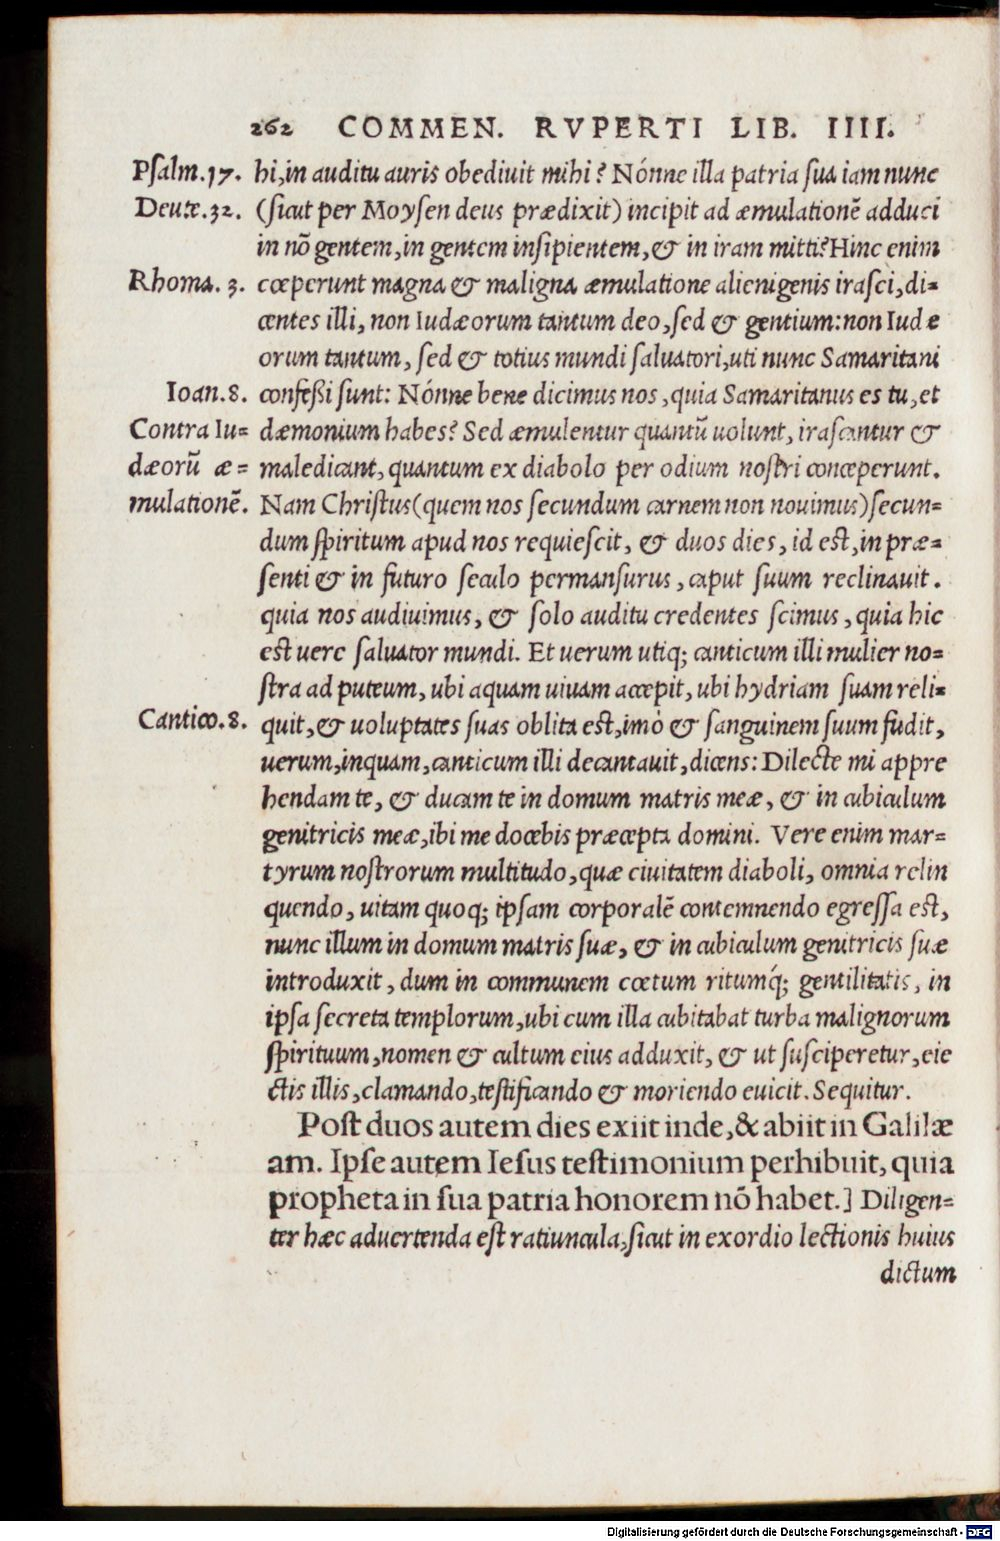 262 COMMEN. RVPERTI LIB. IIII.
Psalm.17. hi,in auditu auris obediuit mihi? Nónne illa patria sua iam nunc
Deute.32. (sicut per Moysen deus prædixit) incipit ad æmulationē adduci
in nō gentem,in gentem insipientem,& in iram mitti?Hinc enim
Rhoma. 3. cœperunt magna & maligna æmulatione alienigenis irasci,di=
centes illi, non Iudæorum tantum deo,sed & gentium:non Iudæ
orum tantum, sed & totius mundi saluatori,uti nunc Samaritani
Ioan.8. confeßi sunt: Nónne bene dicimus nos,quia Samaritanus es tu,et
Contra Iu= dæmonium habes? Sed æmulentur quantū uolunt, irascantur &
dæorū æ= maledicant,quantum ex diabolo per odium nostri conceperunt.
mulationē. Nam Christus(quem nos secundum carnem non nouimus)secun=
dum spiritum apud nos requiescit, & duos dies, id est,in præ=
senti & in futuro seculo permansurus, caput suum reclinauit.
quia nos audiuimus, & solo auditu credentes scimus, quia hic
est uere saluator mundi. Et uerum utiq; canticum illi mulier no=
stra ad puteum, ubi aquam uiuam accepit, ubi hydriam suam reli=
Cantico.8. quit,& uoluptates suas oblita est,imò & sanguinem suum fudit,
uerum,inquam,canticum illi decantauit,dicens: Dilecte mi appre
hendam te, & ducam te in domum matris meæ, & in cubiculum
genitricis meæ,ibi me docebis præcepta domini. Vere enim mar=
tyrum nostrorum multitudo,quæ ciuitatem diaboli, omnia relin
quendo, uitam quoq; ipsam corporalē contemnendo egressa est,
nunc illum in domum matris suæ, & in cubiculum genitricis suæ
introduxit, dum in communem cœtum ritumq́; gentilitatis, in
ipsa secreta templorum,ubi cum illa cubitabat turba malignorum
spirituum,nomen & cultum eius adduxit, & ut susciperetur,eie
ctis illis,clamando,testificando & moriendo euicit. Sequitur.
Post duos autem dies exiit inde,& abiit in Galilæ
am. Ipse autem Iesus testimonium perhibuit, quia
propheta in sua patria honorem nō habet.] Diligen=
ter hæc aduertenda est ratiuncula,sicut in exordio lectionis huius
dictum
Digitalisierung gefördert durch die Deutsche Forschungsgemeinschaft - DFG